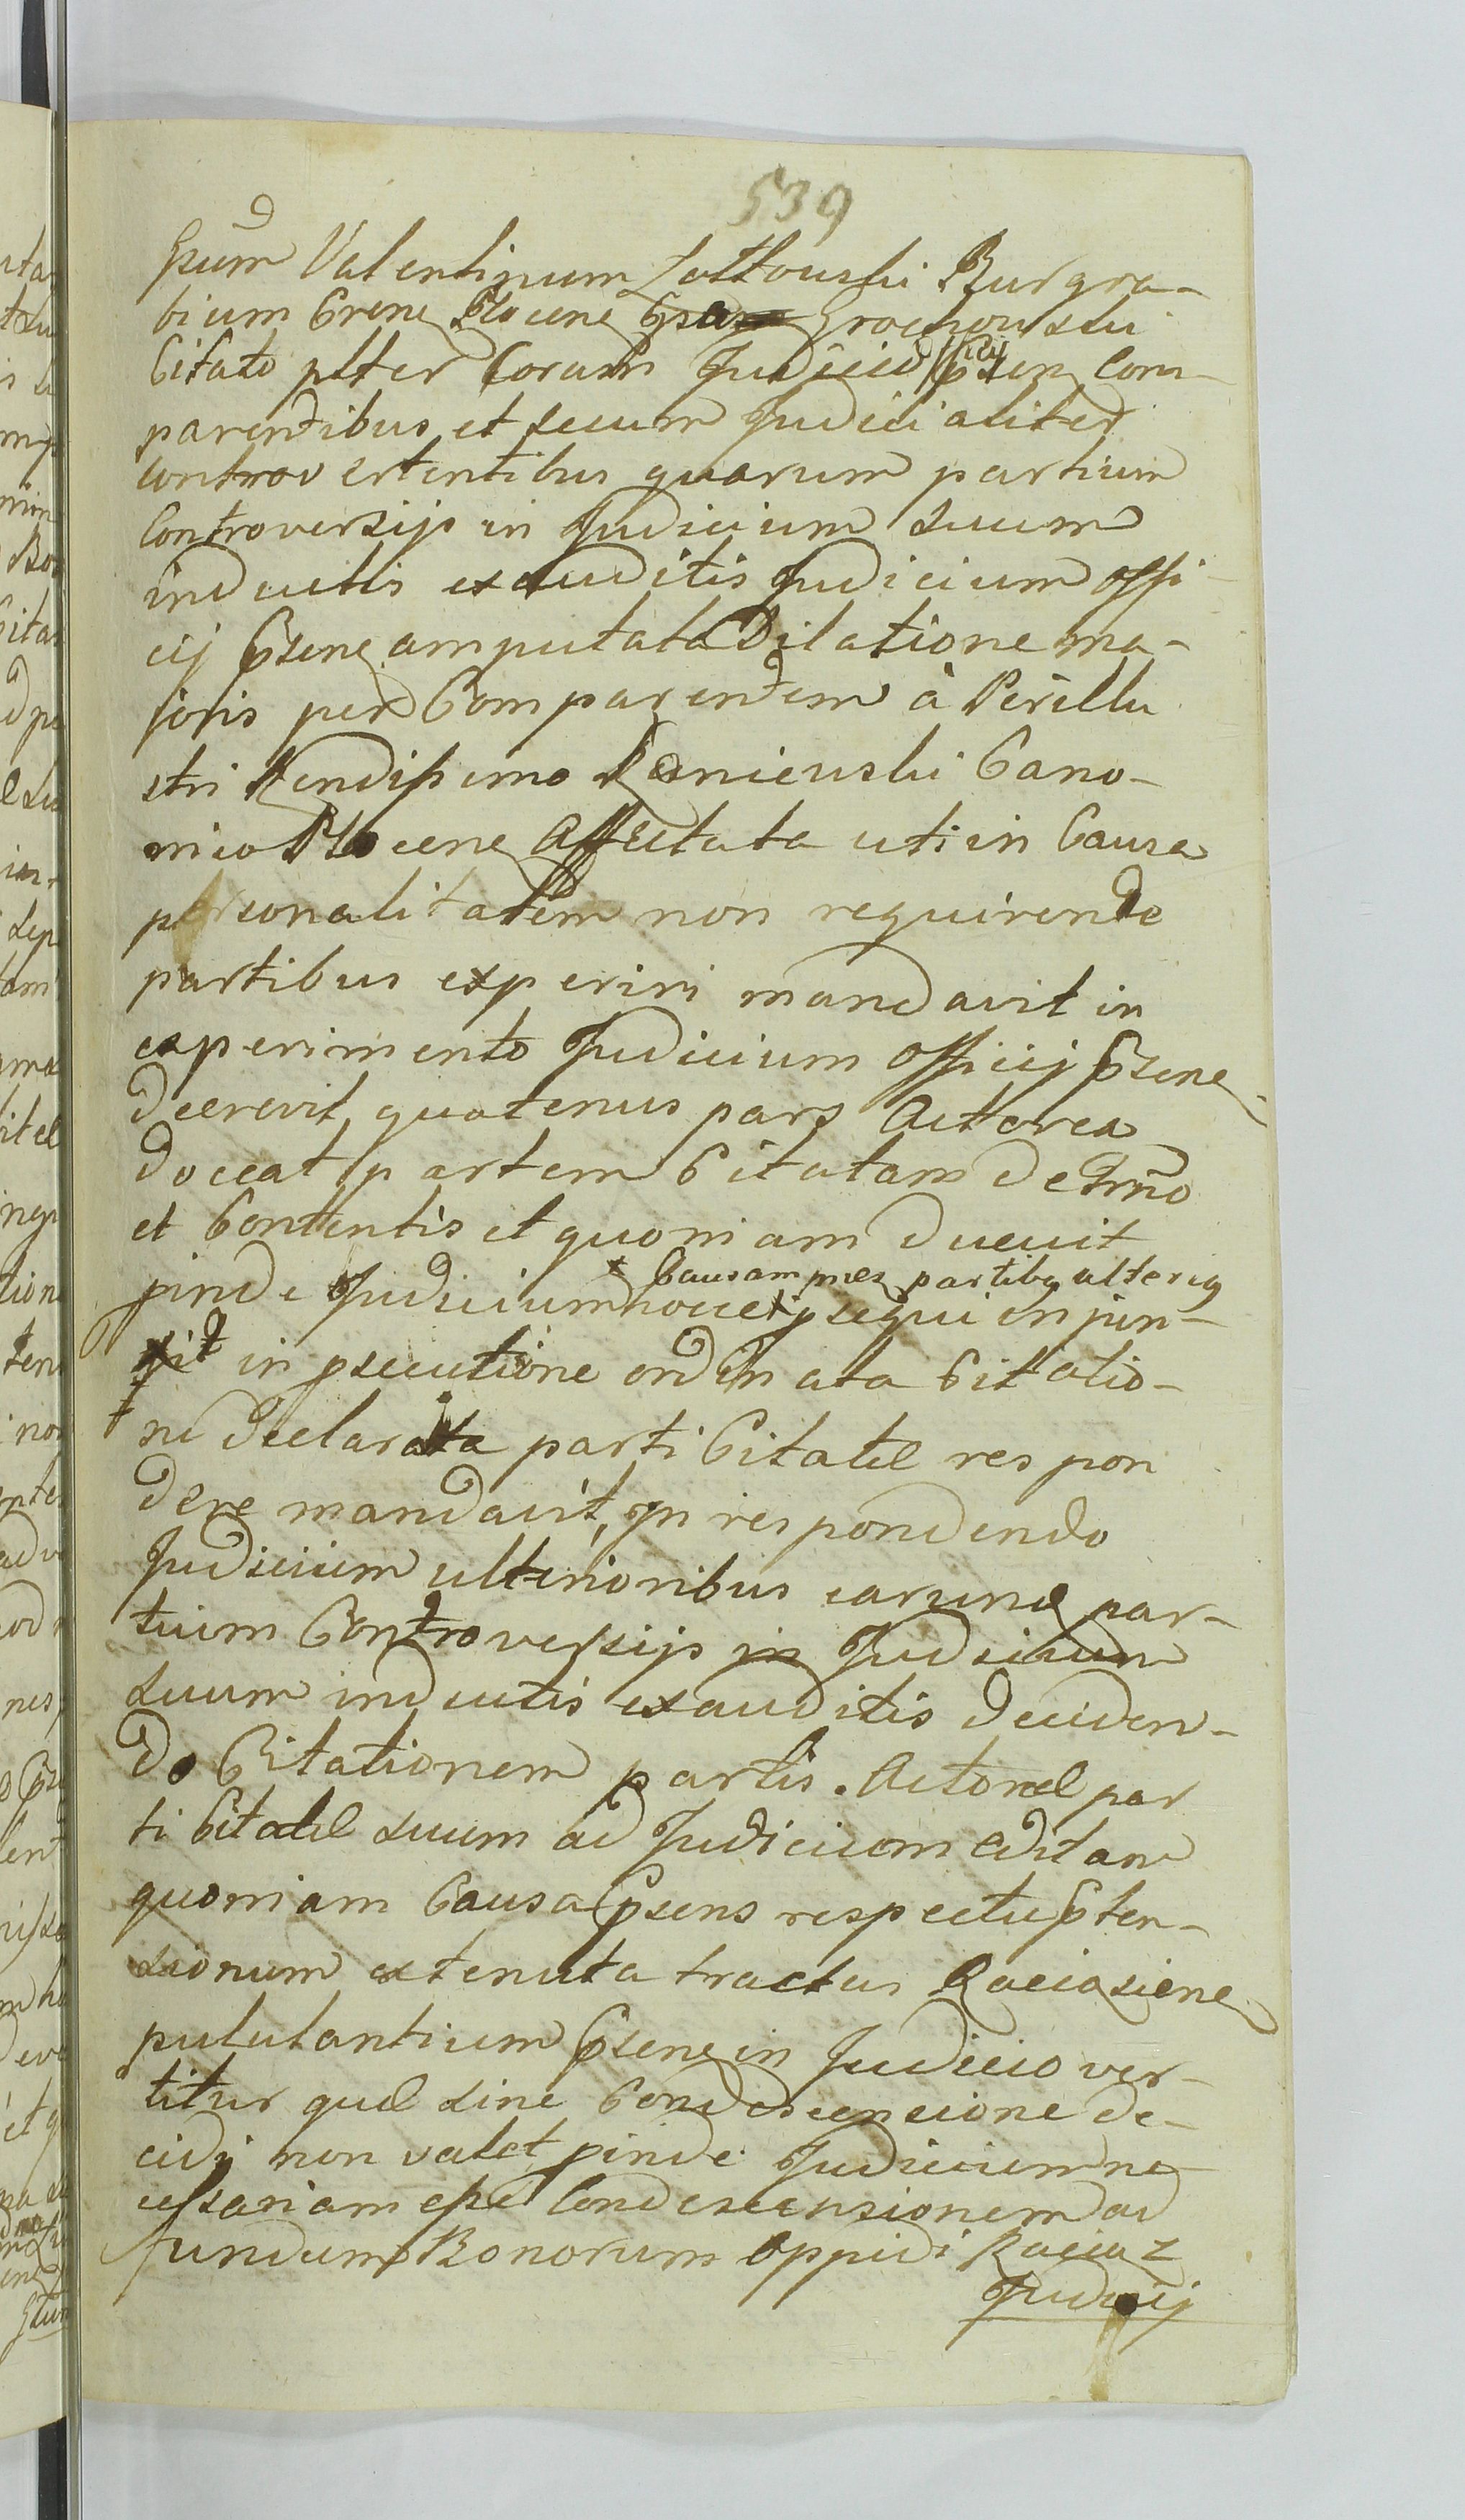 539
Gsum Valentinum Lattowski Burgra-
bium Crenς Plocenς Grochowski
Citato plter Coram Judicio Offi Psen Com-
parendibus et secum Judicialiter
controvertentibus quarum partium
Controversijs in Judicium suum
inductis exauditis Judicium offi-
cij Psenς amputata Dilatione ma-
joris per Comparendem à Perillu
stri Rendissimo Kaniewski Cano-
nico Plocenς Affectata uti in Causa
personalitatem non requirente
partibus experiri mandavit in
experimento Judicium officij Psenς
decrevit quatenus pars Actorea
doceat partem Citatam de Trno
et Contentis et quoniam docuit
pinde Judicium hocce psequi injun-
* Causam pnes partibq ulteriq
xit in psecutione ordinata Citatio-
ne declarata parti Citatæ respon
dere mandavit, In respondendo
Judicium ulterioribus earund par-
tium Controversijs in Judicium
suum inductis exauditis deciden-
do Citationem partis. Actoreæ par
ti Citatæ suum ad Judicium editam
quoniam Causa Psens respectu Pten-
sionum extenuta tractus Raciasienς
pululantium Psenς in Judicio ver-
titur quæ sine Condescensione de-
cidi non valet pinde Judicium ne-
cessariam esse Condescensionem ad
fundum Bonorum Oppidi Raciaz
Judicij